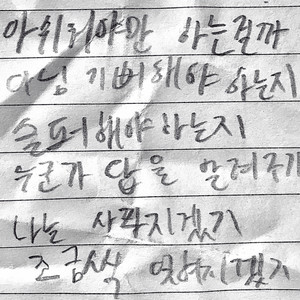 아쉬워야만 하는걸까
아님 기뻐해야 하는지
슬퍼해야 하는지
누군가 답을 알려주기
나는 사라지겠지
조금씩 잊혀지겠지